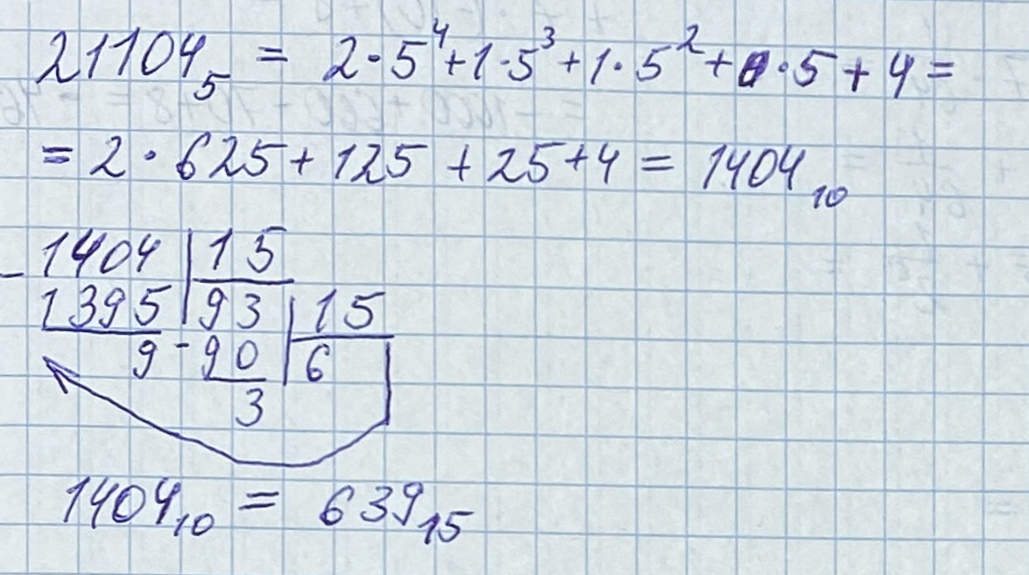 21104₅ = 2·5⁴+1·5³+1·5²+0·5+4=
=2·625+125+25+4=1404₁₀
-1404 | 15
1395 | 93 | 15
9 - 90 | 6
3
1404₁₀ = 639₁₅